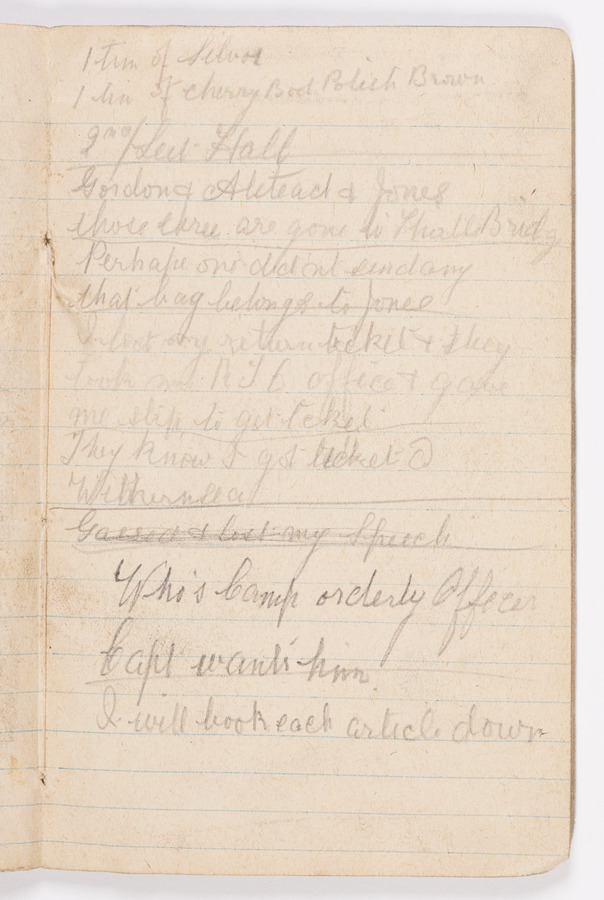 1 tin of Silvo
1 tin of cherry Boot Polish Brown
2nd/Leut Hall
Gordon & & Jones
those three are gone to Bridg
Perhaps one didnt send any
that bag belongs to Jones
I lost my return ticket & they
took me R T O office & gave
me slip to get ticket
They know I got ticket @
Withernsea
Gassed & lost my Speech
Who's Camp orderly Officer
Capt wants him
I will book each article down